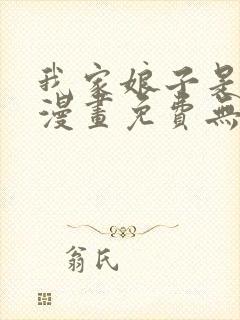 我家娘子是
漫畫免費無
翁氏